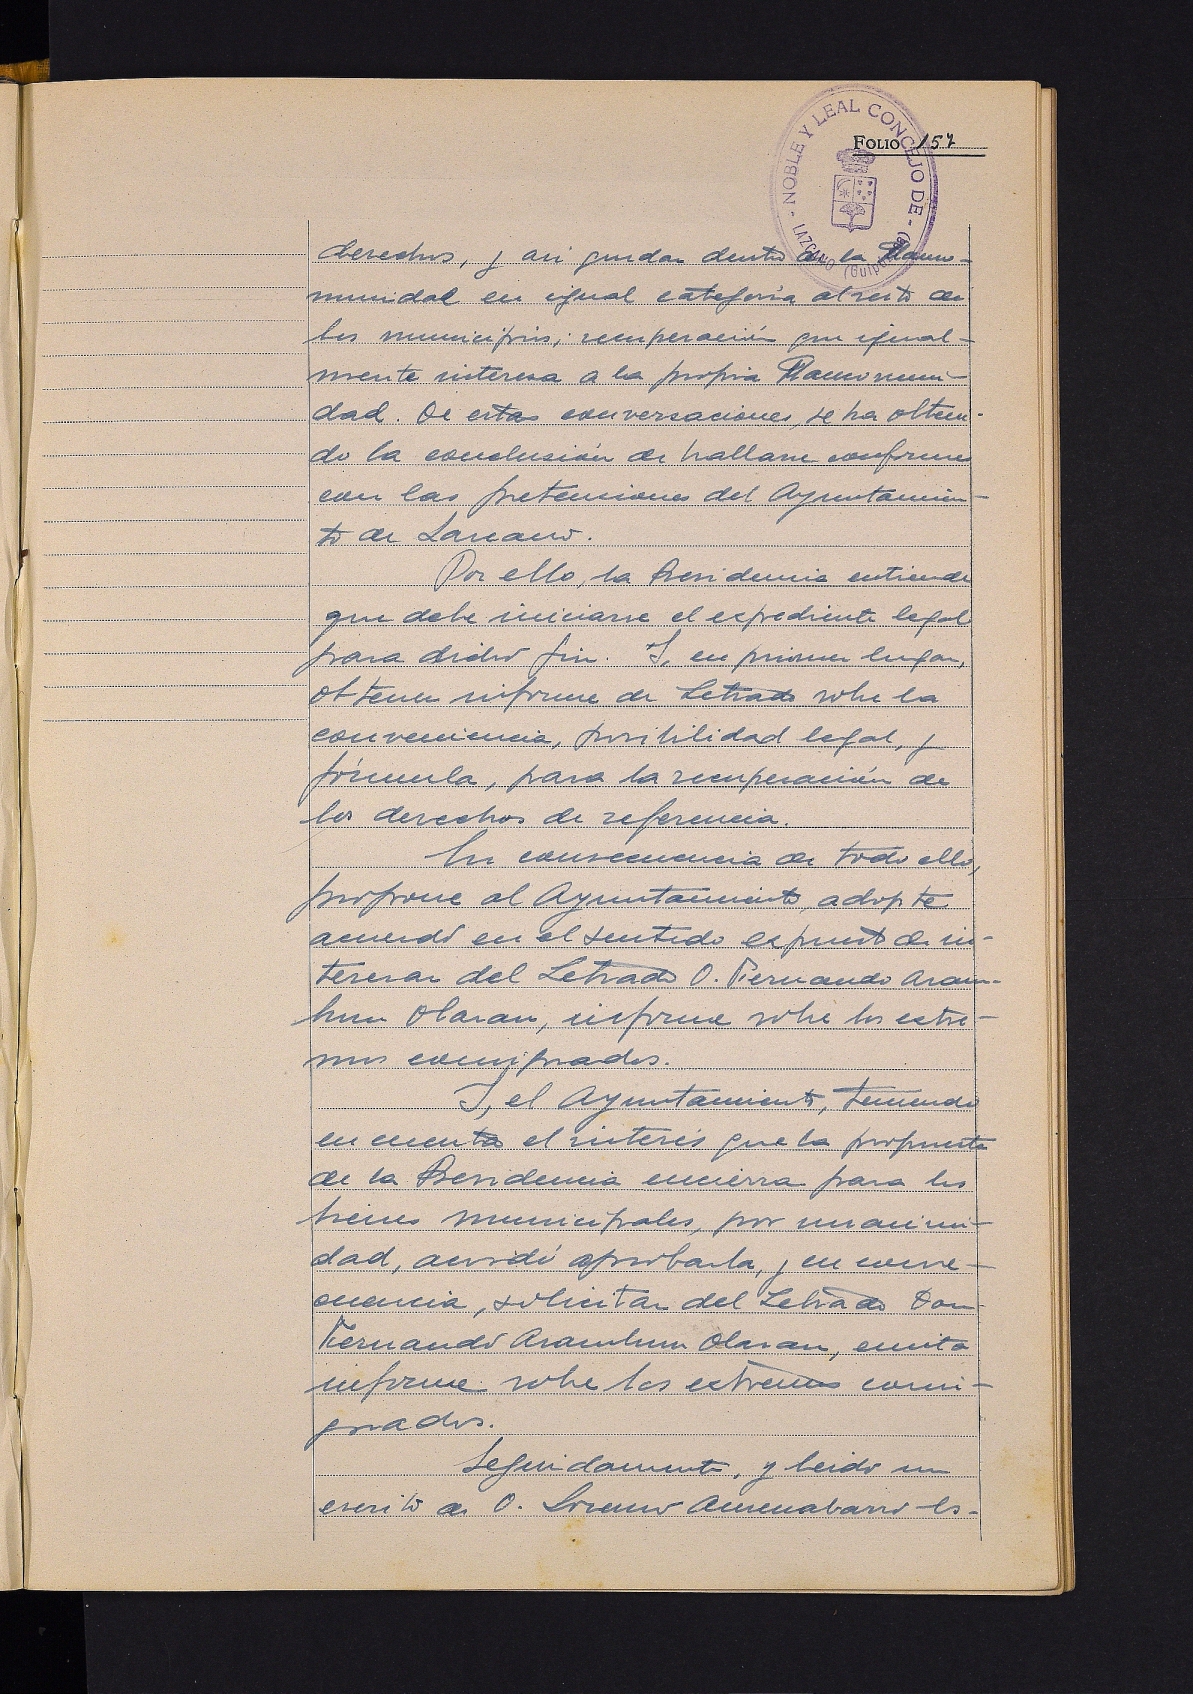 FOLIO 157
- NOBLE Y LEAL CONCEJO DE - LAZCANO (Guipúzcoa)
derechos, y asi quedar dentro de la Manco-
munidad en igual categoría al resto de
los municipios; recuperación que igual-
mente interesa a la propia Mancomuni-
dad. De estas conversaciones, se ha obteni-
do la conclusión de hallarse conformes
con las pretensiones del Ayuntamien-
to de Lazcano.
Por ello, la Presidencia entiende
que debe iniciarse el expediente legal
para dicho fin. Y, en primer lugar,
obtener informe de Letrado sobre la
conveniencia, posibilidad legal, y
fórmula, para la recuperación de
los derechos de referencia.
En consecuencia de todo ello,
propone al Ayuntamiento, adopte
acuerdo en el sentido expuesto de in-
teresar del Letrado D. Fernando Aram-
buru Olaran, informe sobre los extre-
mos consignados.
Y, el Ayuntamiento, teniendo
en cuenta el interés que la propuesta
de la Presidencia encierra para los
bienes municipales, por unanimi-
dad, acordó aprobarla, y en conse-
cuencia, solicitar del Letrado Don
Fernando Aramburu Olaran, emita
informe sobre los extremos consi-
gnados.
Seguidamente, y leido un
escrito de D. Lorenzo Amenabarro Es-